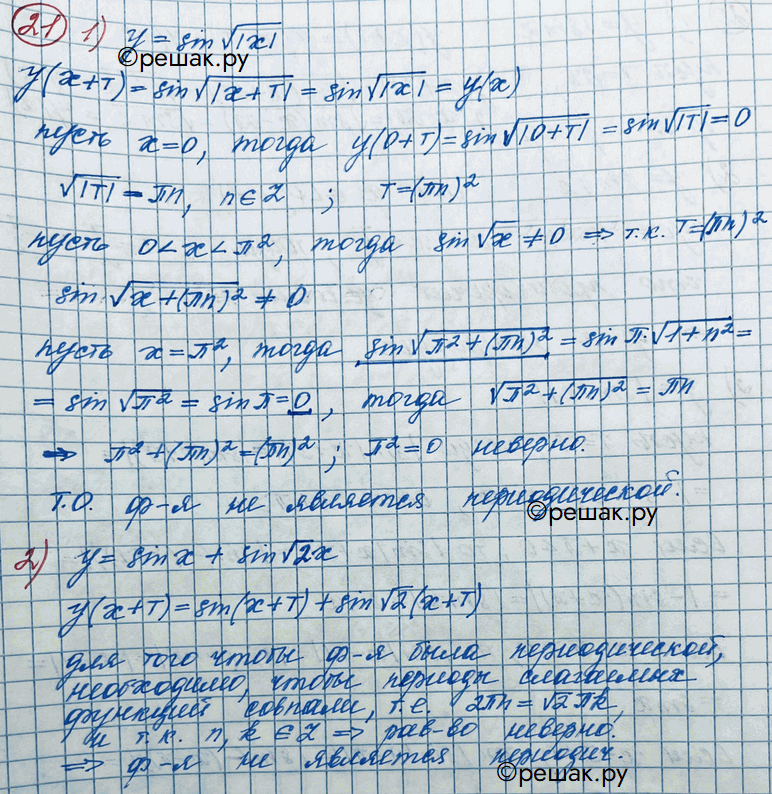 21 1) y = sin √|x|
©решак.ру
y(x+T) = sin √|x+T| = sin √|x| = y(x)
пусть x=0, тогда y(0+T) = sin √|0+T| = sin √|T| = 0
√|T| = πn, n ∈ Z ; T = (πn)²
пусть 0 < x < π², тогда sin √x ≠ 0 ⇒ т.к. T = (πn)²
sin √(x+(πn)²) ≠ 0
пусть x = π², тогда sin √(π²+(πn)²) = sin π·√(1+n²) =
= sin √π² = sin π = 0, тогда √(π²+(πn)²) = πn
⇒ π²+(πn)² = (πn)² ; π² = 0 неверно.
Т.О. ф-я не является периодической.
©решак.ру
2) y = sin x + sin √2 x
y(x+T) = sin(x+T) + sin √2 (x+T)
для того чтобы ф-я была периодической,
необходимо, чтобы периоды слагаемых
функций совпали, т.е. 2πn = √2 πk,
и т.к. n, k ∈ Z ⇒ рав-во неверно.
⇒ ф-я не является периодич.
©решак.ру